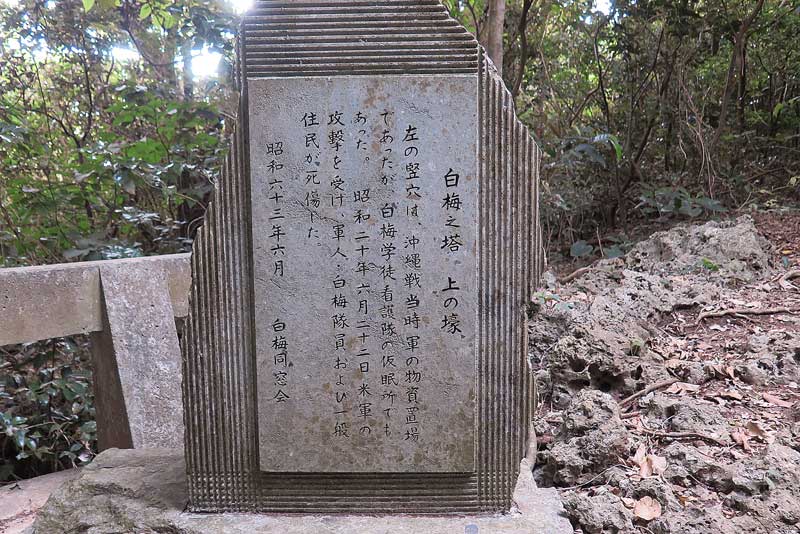 白梅之塔 上の壕
左の竪穴は、沖縄戦当時軍の物資置場
であったが、白梅学徒看護隊の仮眠所でも
あった。 昭和二十年六月二十二日米軍の
攻撃を受け、軍人・白梅隊員および一般
住民が死傷した。
昭和六十三年六月 白梅同窓会